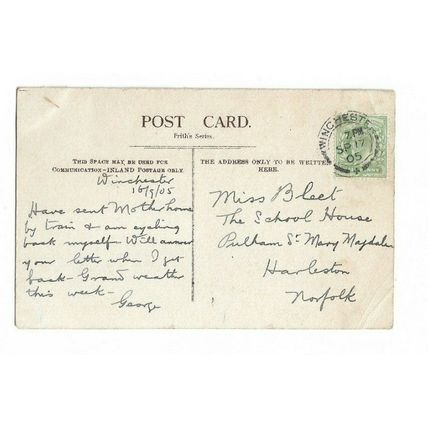 POST CARD.
Frith's Series.
THIS SPACE MAY BE USED FOR
COMMUNICATION—INLAND POSTAGE ONLY.
THE ADDRESS ONLY TO BE WRITTEN
HERE.
WINCHESTE
7 PM
SP 17
05
Winchester
16/9/05
Have sent Mother home
by train & am cycling
back myself - Will answer
your letter when I get
back - Grand weather
this week -
George
Miss Bleet
The School House
Pulham St. Mary Magdalen
Harleston
Norfolk